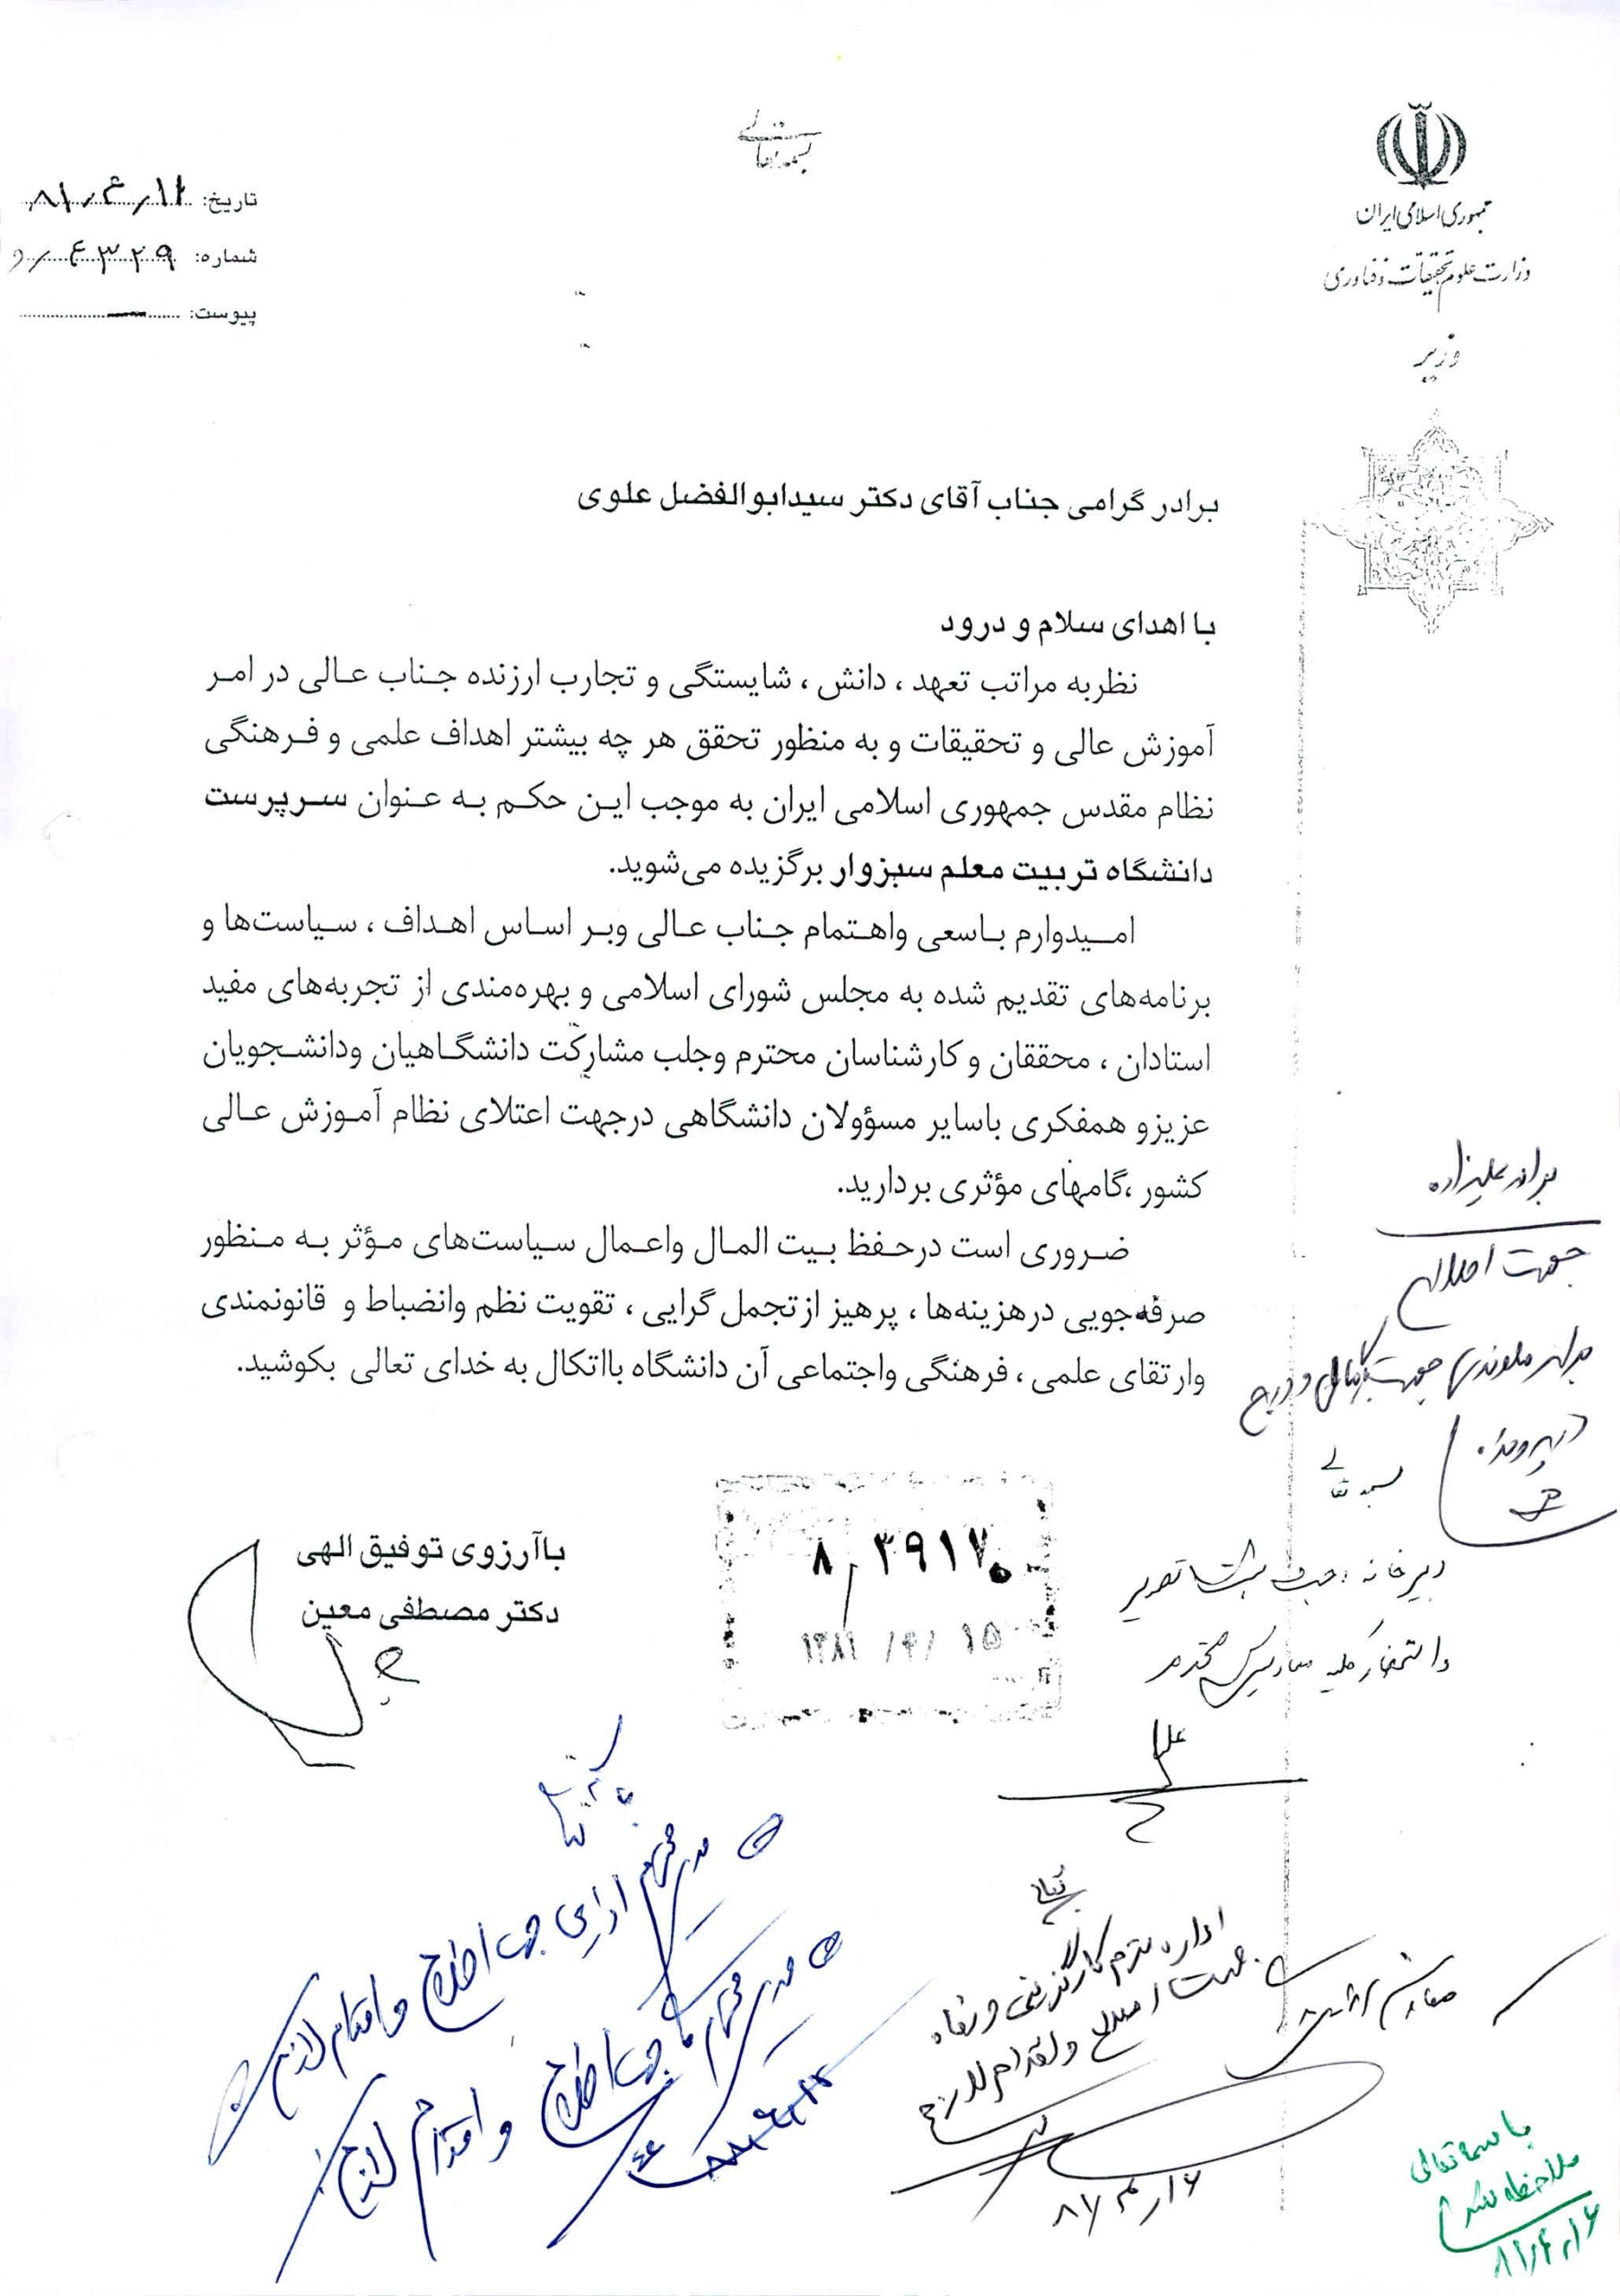 بسمه تعالی
جمهوری اسلامی ایران
وزارت علوم تحقیقات و فناوری
وزیر
تاریخ: ۸۱/۴/۱۲
شماره: ۴۳۲۹/و
پیوست: —
برادر گرامی جناب آقای دکتر سیدابوالفضل علوی
با اهدای سلام و درود
نظربه مراتب تعهد ، دانش ، شایستگی و تجارب ارزنده جناب عالی در امر
آموزش عالی و تحقیقات و به منظور تحقق هر چه بیشتر اهداف علمی و فرهنگی
نظام مقدس جمهوری اسلامی ایران به موجب این حکم به عنوان سرپرست
دانشگاه تربیت معلم سبزوار برگزیده می‌شوید.
امیدوارم باسعی واهتمام جناب عالی وبر اساس اهداف ، سیاست‌ها و
برنامه‌های تقدیم شده به مجلس شورای اسلامی و بهره‌مندی از تجربه‌های مفید
استادان ، محققان و کارشناسان محترم وجلب مشارکت دانشگاهیان ودانشجویان
عزیزو همفکری باسایر مسؤولان دانشگاهی درجهت اعتلای نظام آموزش عالی
کشور ،گامهای مؤثری بردارید.
ضروری است درحفظ بیت المال واعمال سیاست‌های مؤثر به منظور
صرفه‌جویی درهزینه‌ها ، پرهیز ازتجمل گرایی ، تقویت نظم وانضباط و قانونمندی
وارتقای علمی ، فرهنگی واجتماعی آن دانشگاه بااتکال به خدای تعالی بکوشید.
باآرزوی توفیق الهی
دکتر مصطفی معین
۸/۳۹۱۷۰
۱۳۸۱ /۴/ ۱۵
برادر علیزاده
جهت اطلاع
در پرونده
بسمه تعالی
دبیرخانه
اداره محترم کارگزینی و رفاه
جهت اطلاع و اقدام لازم
مدیر محترم اداری جهت اطلاع و اقدام لازم
مدیر محترم
جهت اطلاع و اقدام لازم
باسمه تعالی
ملاحظه شد
۸۱/۴/۱۶